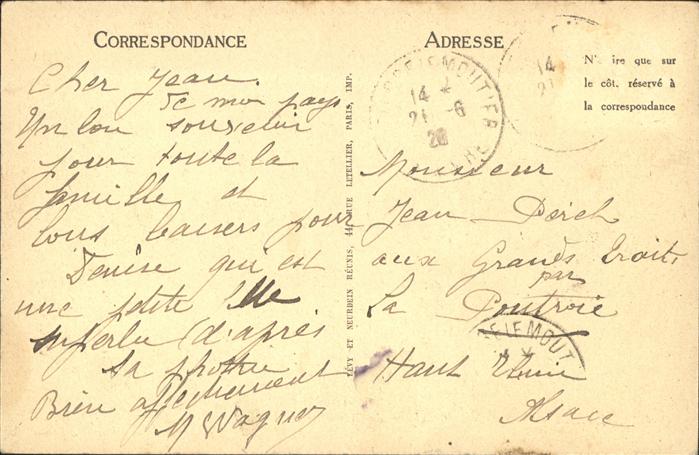 CORRESPONDANCE
Cher Jean.
de mon pays
Un bon souvenir
pour toute la
famille et
bons baisers pour
Denise qui est
une petite
superbe (d'après
sa photo
Bien affectueusement
M Wagner
LÉVY ET NEURDEIN RÉUNIS, 44, RUE LETELLIER, PARIS, IMP.
ADRESSE
N'é ire que sur
le côt. réservé à
la correspondance
14 *
21 -6
20
14
21
Monsieur
Jean
aux Grands Traits
par
La Poutroie
Haut Rhin
Alsace